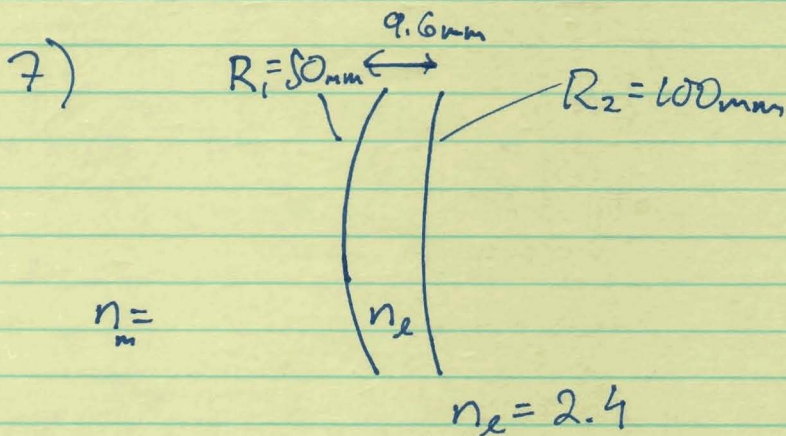 9.6mm
7) R₁=50mm R₂=100mm
n_m= n_e
n_e=2.4